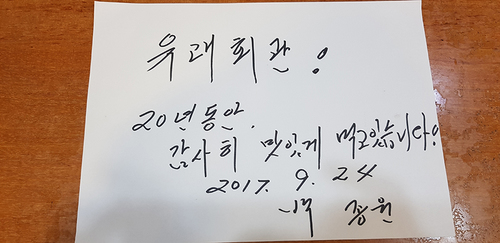 유래회관!
20년동안.
감사히 맛있게 먹고있습니다!
2017. 9. 24
종원